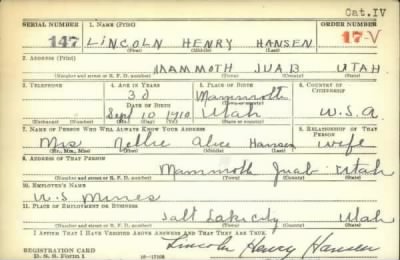 Cat. IV
SERIAL NUMBER 1. NAME (Print) ORDER NUMBER
147 LINCOLN HENRY HANSEN 17-V
(First) (Middle) (Last)
2. ADDRESS (Print)
MAMMOTH JUAB UTAH
(Number and street or R. F. D. number) (Town) (County) (State)
3. TELEPHONE 4. AGE IN YEARS 5. PLACE OF BIRTH 6. COUNTRY OF CITIZENSHIP
30 Mammoth
DATE OF BIRTH (Town or county)
Sept 10 1910 Utah U.S.A
(Exchange) (No.) (Mo.) (Day) (Yr.) (State or country)
7. NAME OF PERSON WHO WILL ALWAYS KNOW YOUR ADDRESS 8. RELATIONSHIP OF THAT PERSON
Mrs Nellie Alice Hansen wife
(Mr., Mrs., Miss) (First) (Middle) (Last)
9. ADDRESS OF THAT PERSON
Mammoth Juab Utah
(Number and street or R. F. D. number) (Town) (County) (State)
10. EMPLOYER'S NAME
U.S Mines
11. PLACE OF EMPLOYMENT OR BUSINESS
Salt Lake city Utah
(Number and street or R. F. D. number) (Town) (County) (State)
I AFFIRM THAT I HAVE VERIFIED ABOVE ANSWERS AND THAT THEY ARE TRUE.
Lincoln Henry Hansen
REGISTRATION CARD
D. S. S. Form 1
(Registrant's signature)